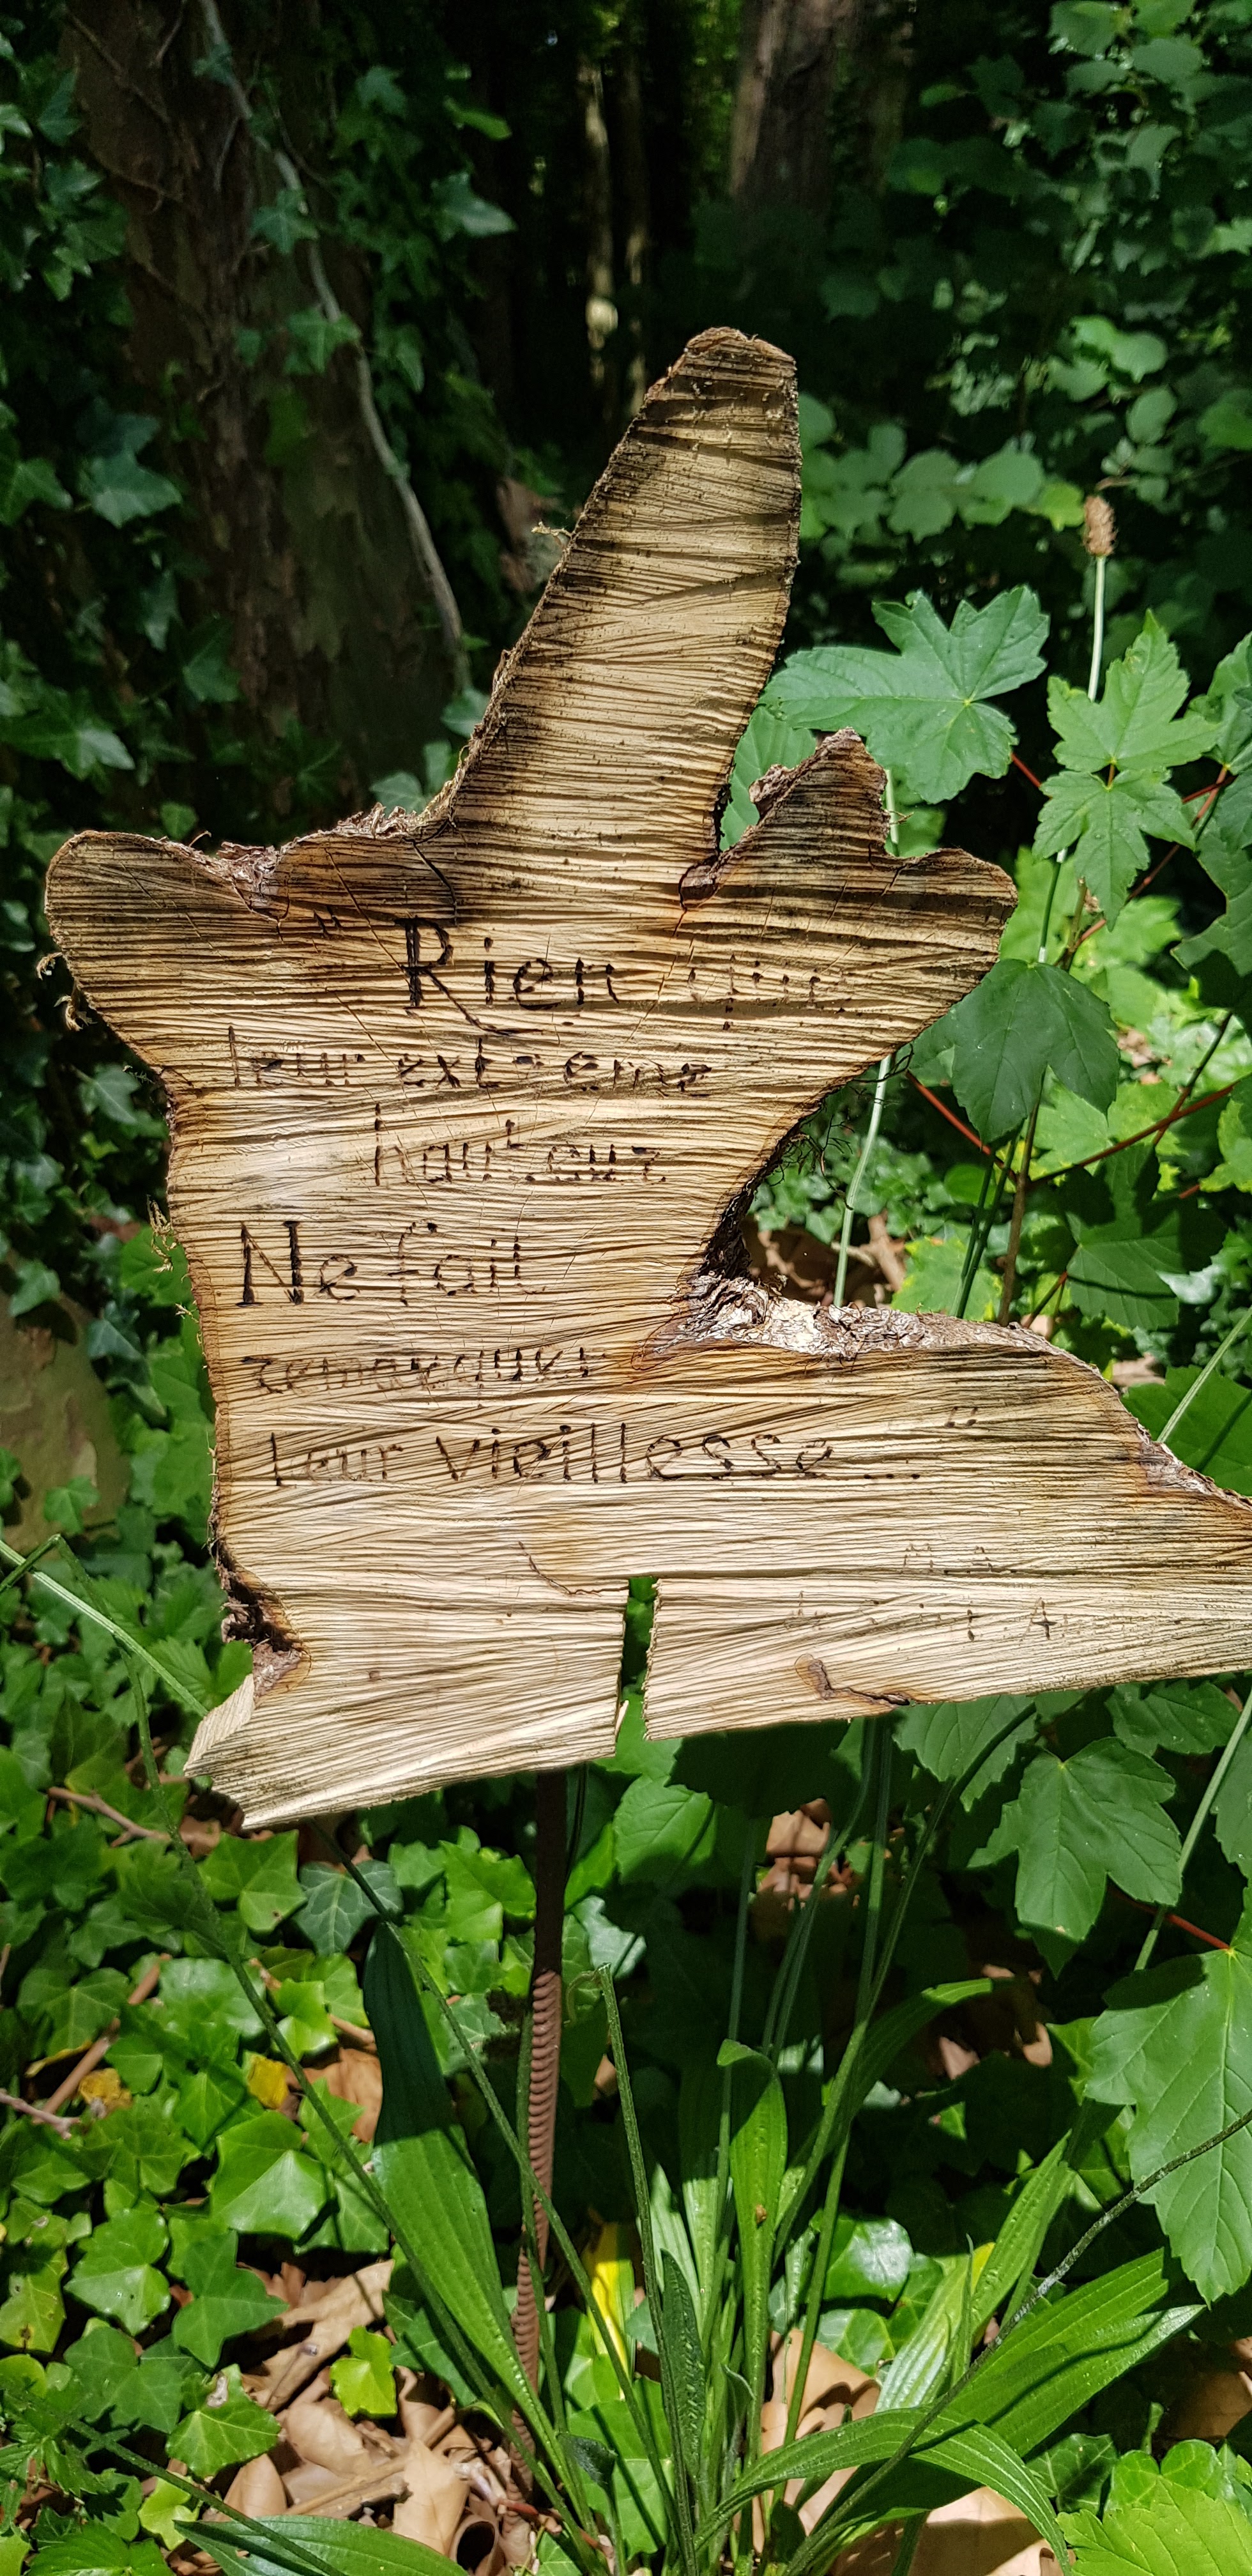 " Rien que
leur extrême
hauteur
Ne fait
remarquer
Leur vieillesse ... "